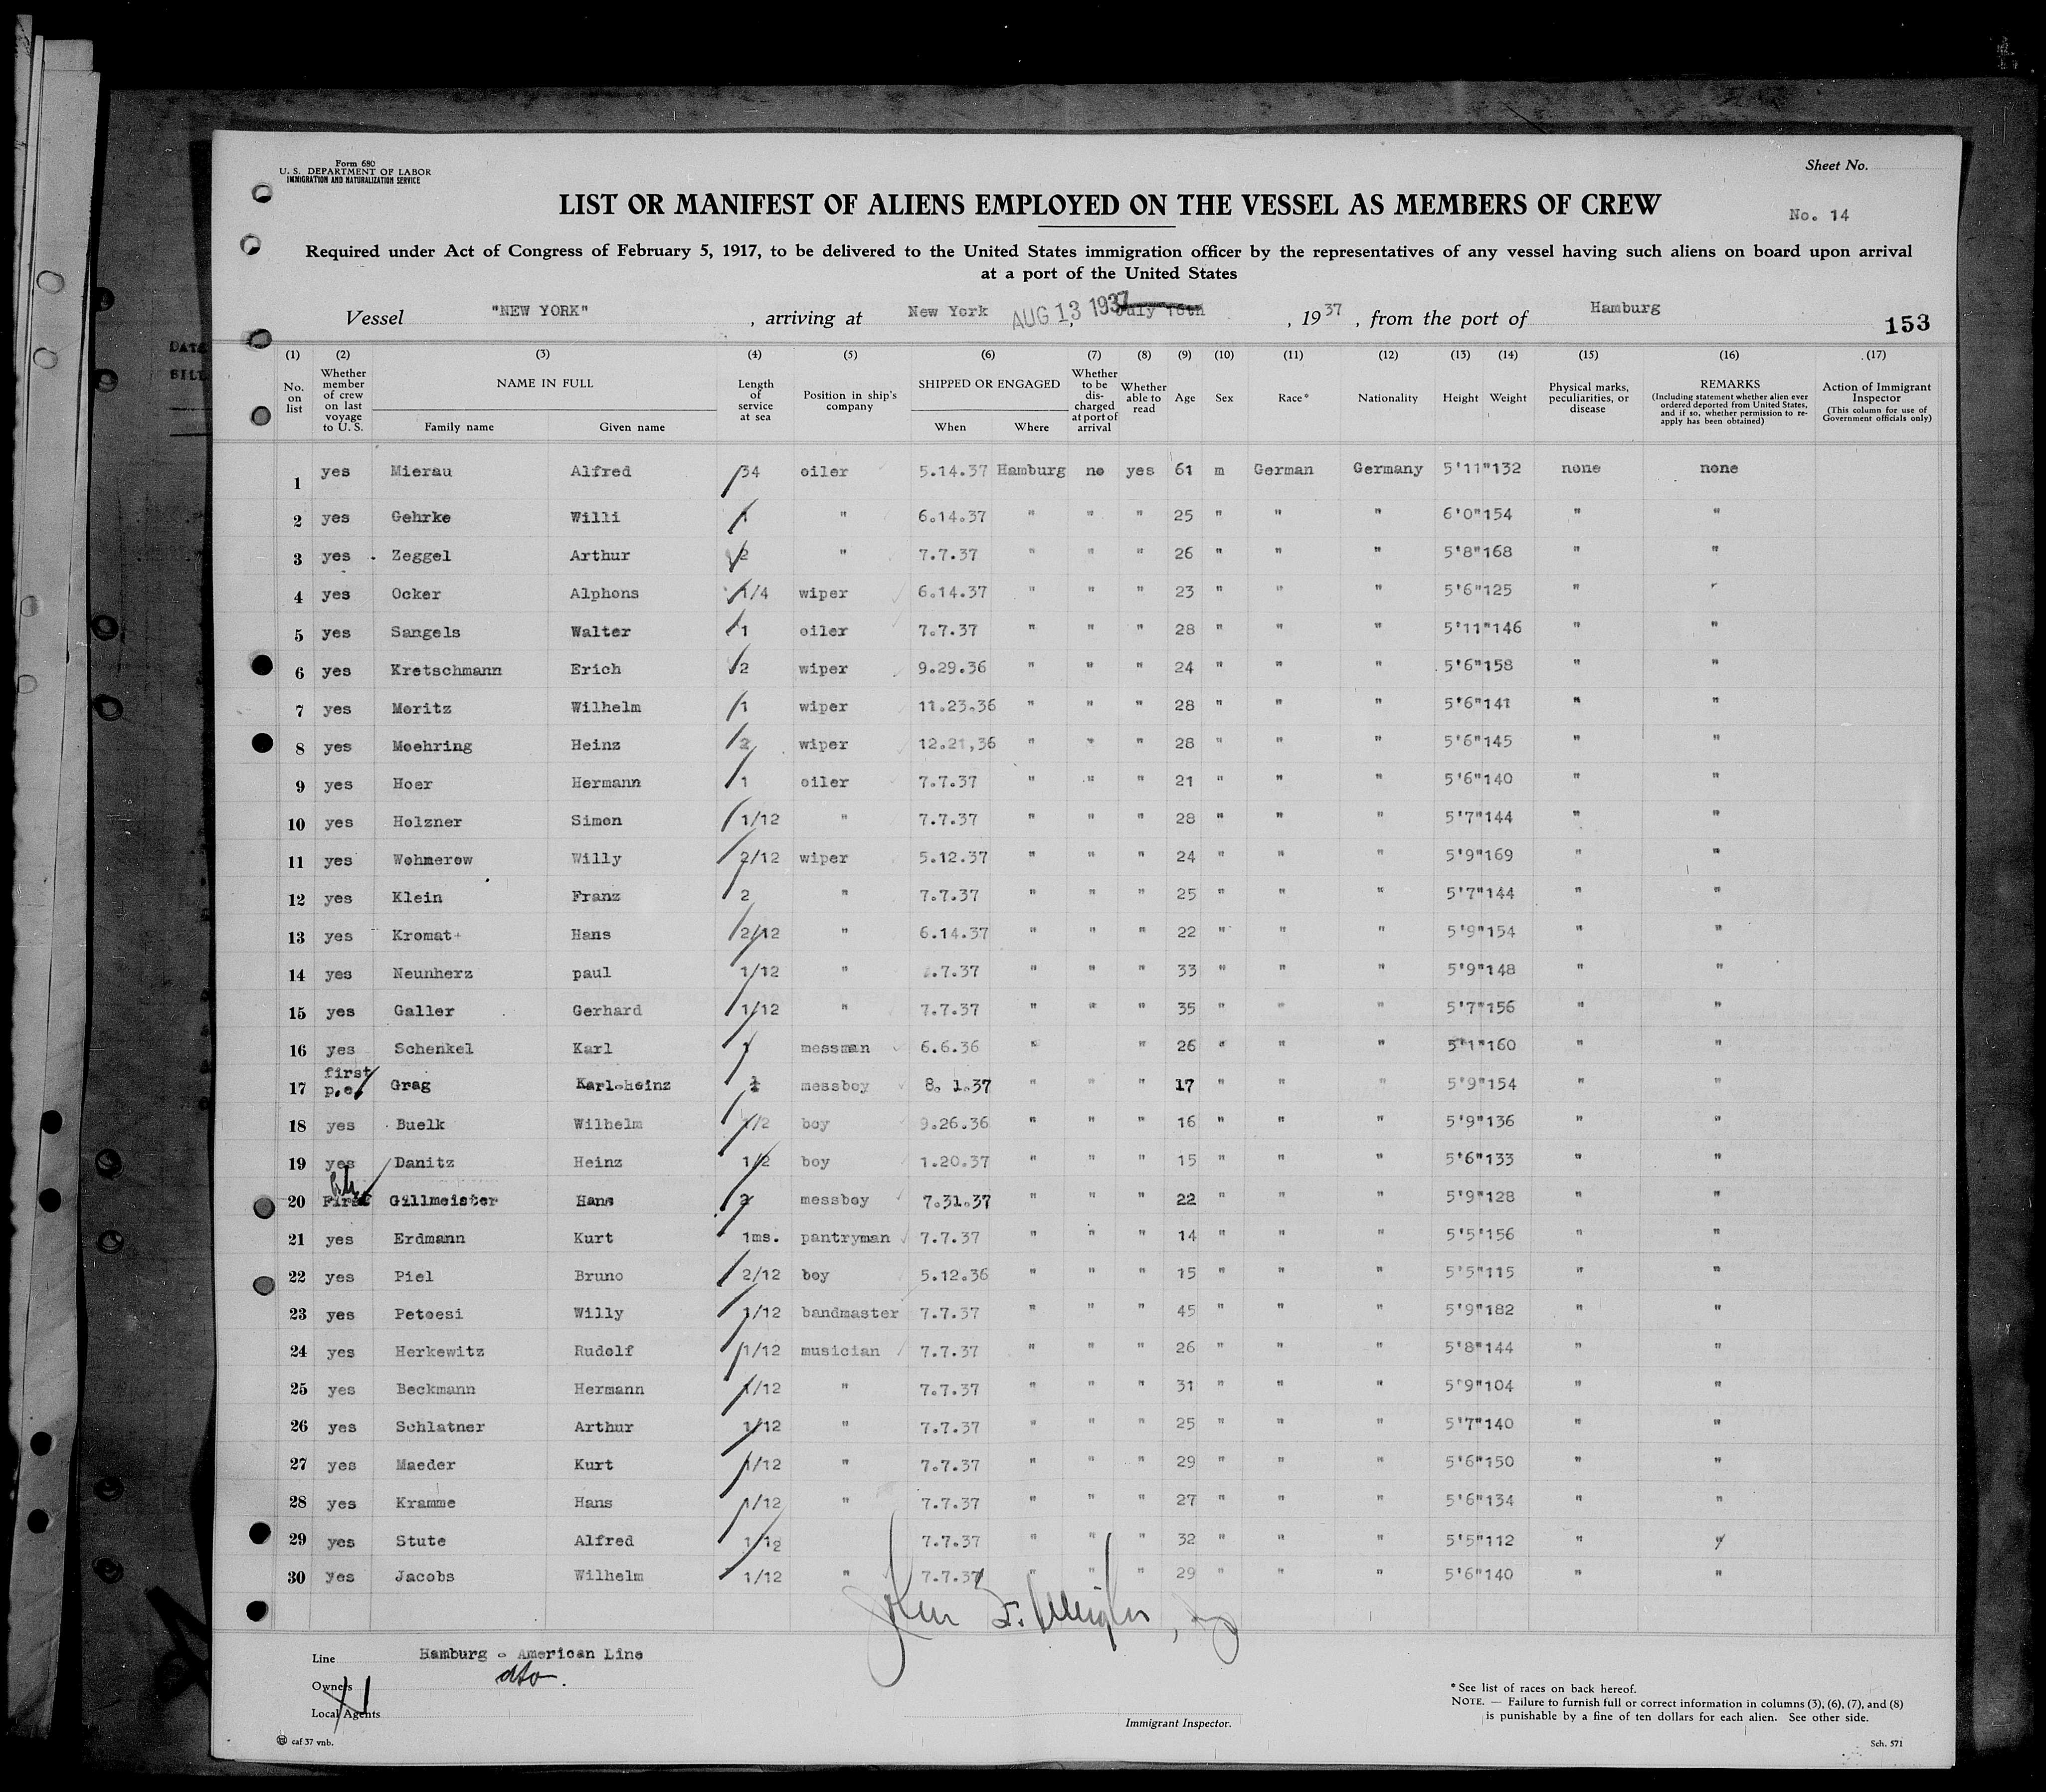 Form 680
U. S. DEPARTMENT OF LABOR
IMMIGRATION AND NATURALIZATION SERVICE
Sheet No.
LIST OR MANIFEST OF ALIENS EMPLOYED ON THE VESSEL AS MEMBERS OF CREW
No. 14
Required under Act of Congress of February 5, 1917, to be delivered to the United States immigration officer by the representatives of any vessel having such aliens on board upon arrival
at a port of the United States
Vessel "NEW YORK" , arriving at New York AUG 13 1937 , July 16th , 1937 , from the port of Hamburg
153
(1) (2) (3) (4) (5) (6) (7) (8) (9) (10) (11) (12) (13) (14) (15) (16) (17)
No. on list Whether member of crew on last voyage to U. S. NAME IN FULL Family name Given name Length of service at sea Position in ship's company SHIPPED OR ENGAGED When Where Whether to be discharged at port of arrival Whether able to read Age Sex Race* Nationality Height Weight Physical marks, peculiarities, or disease REMARKS (Including statement whether alien ever ordered deported from United States, and if so, whether permission to reapply has been obtained) Action of Immigrant Inspector (This column for use of Government officials only)
1 yes Mierau Alfred 34 oiler 5.14.37 Hamburg no yes 61 m German Germany 5'11" 132 none none
2 yes Gehrke Willi 1 " 6.14.37 " " " 25 " " " 6'0" 154 " "
3 yes Zeggel Arthur 2 " 7.7.37 " " " 26 " " " 5'8" 168 " "
4 yes Ocker Alphons 1/4 wiper 6.14.37 " " " 23 " " " 5'6" 125 " "
5 yes Sangels Walter 1 oiler 7.7.37 " " " 28 " " " 5'11" 146 " "
6 yes Kretschmann Erich 2 wiper 9.29.36 " " " 24 " " " 5'6" 158 " "
7 yes Moritz Wilhelm 1 wiper 11.23.36 " " " 28 " " " 5'6" 141 " "
8 yes Moehring Heinz 2 wiper 12.21,36 " " " 28 " " " 5'6" 145 " "
9 yes Hoer Hermann 1 oiler 7.7.37 " " " 21 " " " 5'6" 140 " "
10 yes Holzner Simon 1/12 " 7.7.37 " " " 28 " " " 5'7" 144 " "
11 yes Wohmerow Willy 2/12 wiper 5.12.37 " " " 24 " " " 5'9" 169 " "
12 yes Klein Franz 2 " 7.7.37 " " " 25 " " " 5'7" 144 " "
13 yes Kromat Hans 2/12 " 6.14.37 " " " 22 " " " 5'9" 154 " "
14 yes Neunherz paul 1/12 " .7.37 " " " 33 " " " 5'9" 148 " "
15 yes Galler Gerhard 1/12 " 7.7.37 " " " 35 " " " 5'7" 156 " "
16 yes Schenkel Karl 1 messman 6.6.36 " " " 26 " " " 5'1" 160 " "
17 first p.e. Grag Karl-heinz messboy 8. 1.37 " " " 17 " " " 5'9" 154 " "
18 yes Buelk Wilhelm 1/2 boy 9.26.36 " " " 16 " " " 5'9" 136 " "
19 yes Danitz Heinz 1/2 boy 1.20.37 " " " 15 " " " 5'6" 133 " "
20 First Gillmeister Hans 2 messboy 7.31.37 " " " 22 " " " 5'9" 128 " "
21 yes Erdmann Kurt 1ms. pantryman 7.7.37 " " " 14 " " " 5'5" 156 " "
22 yes Piel Bruno 2/12 boy 5.12.36 " " " 15 " " " 5'5" 115 " "
23 yes Petoesi Willy 1/12 bandmaster 7.7.37 " " " 45 " " " 5'9" 182 " "
24 yes Herkewitz Rudolf 1/12 musician 7.7.37 " " " 26 " " " 5'8" 144 " "
25 yes Beckmann Hermann 1/12 " 7.7.37 " " " 31 " " " 5'9" 104 " "
26 yes Schlatner Arthur 1/12 " 7.7.37 " " " 25 " " " 5'7" 140 " "
27 yes Maeder Kurt 1/12 " 7.7.37 " " " 29 " " " 5'6" 150 " "
28 yes Kramme Hans 1/12 " 7.7.37 " " " 27 " " " 5'6" 134 " "
29 yes Stute Alfred 1/12 7.7.37 " " " 32 " " " 5'5" 112 " "
30 yes Jacobs Wilhelm 1/12 " 7.7.37 " " " 29 " " " 5'6" 140 " "
Line Hamburg - American Line
Owners dto.
Local Agents
Immigrant Inspector.
* See list of races on back hereof.
NOTE. — Failure to furnish full or correct information in columns (3), (6), (7), and (8)
is punishable by a fine of ten dollars for each alien. See other side.
caf 37 vnb.
Sch. 571